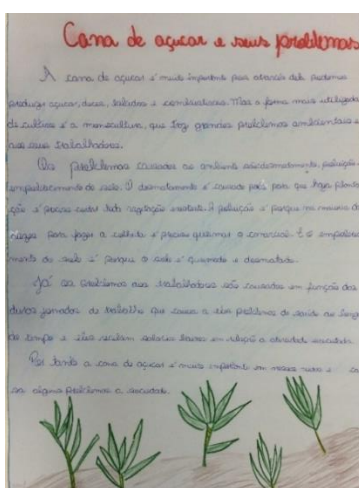 Cana de açucar e seus problemas
A cana de açucar é muito importante pois atraves dela podemos
produzir açucar, doces, bebidas e combustiveis. Mas a forma mais utilizada
de cultivo é a monocultura, que traz grandes problemas ambientais e
aos seus trabalhadores.
Os problemas causados ao ambiente são desmatamento, poluição,
empobrecimento do solo. O desmatamento é causado pois para que haja planta
ção é preciso cortar toda vegetação existente. A poluição é porque na maioria das
vezes para fazer a colheita é preciso queimar o canavial. E o empobreci
mento do solo é porque o solo é queimado e desmatado.
Já os problemas aos trabalhadores são causados em função das
duras jornadas de trabalho que causa a eles problemas de saúde ao longo
do tempo e eles recebem salarios baixos em relação a atividade executada.
Por tanto a cana de açucar é muito importante em nosso meio e
alguns problemas a sociedade.